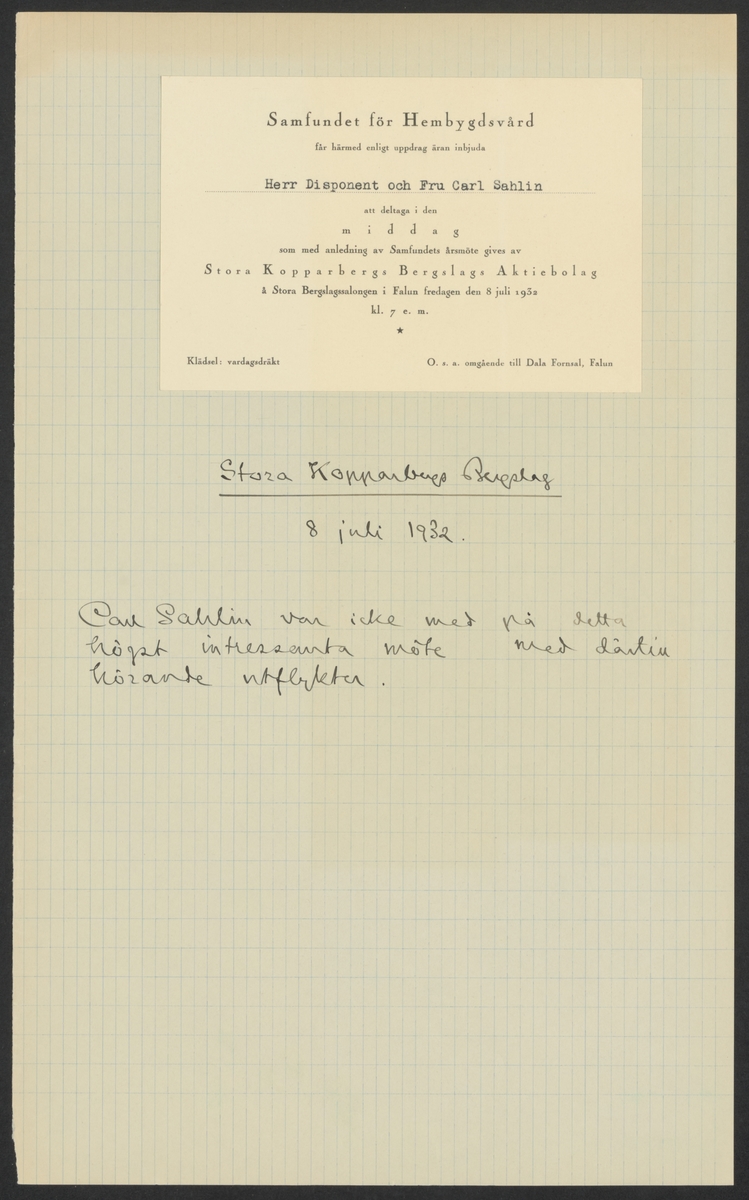 Samfundet för Hembygdsvård
får härmed enligt uppdrag äran inbjuda
Herr Disponent och Fru Carl Sahlin
att deltaga i den
middag
som med anledning av Samfundets årsmöte gives av
Stora Kopparbergs Bergslags Aktiebolag
å Stora Bergslagssalongen i Falun fredagen den 8 juli 1932
kl. 7 e. m.
★
Klädsel: vardagsdräkt O. s. a. omgående till Dala Fornsal, Falun
Stora Kopparbergs Bergslag
8 juli 1932.
Carl Sahlin var icke med på detta
högst intressanta möte med därtill
hörande utflykter.